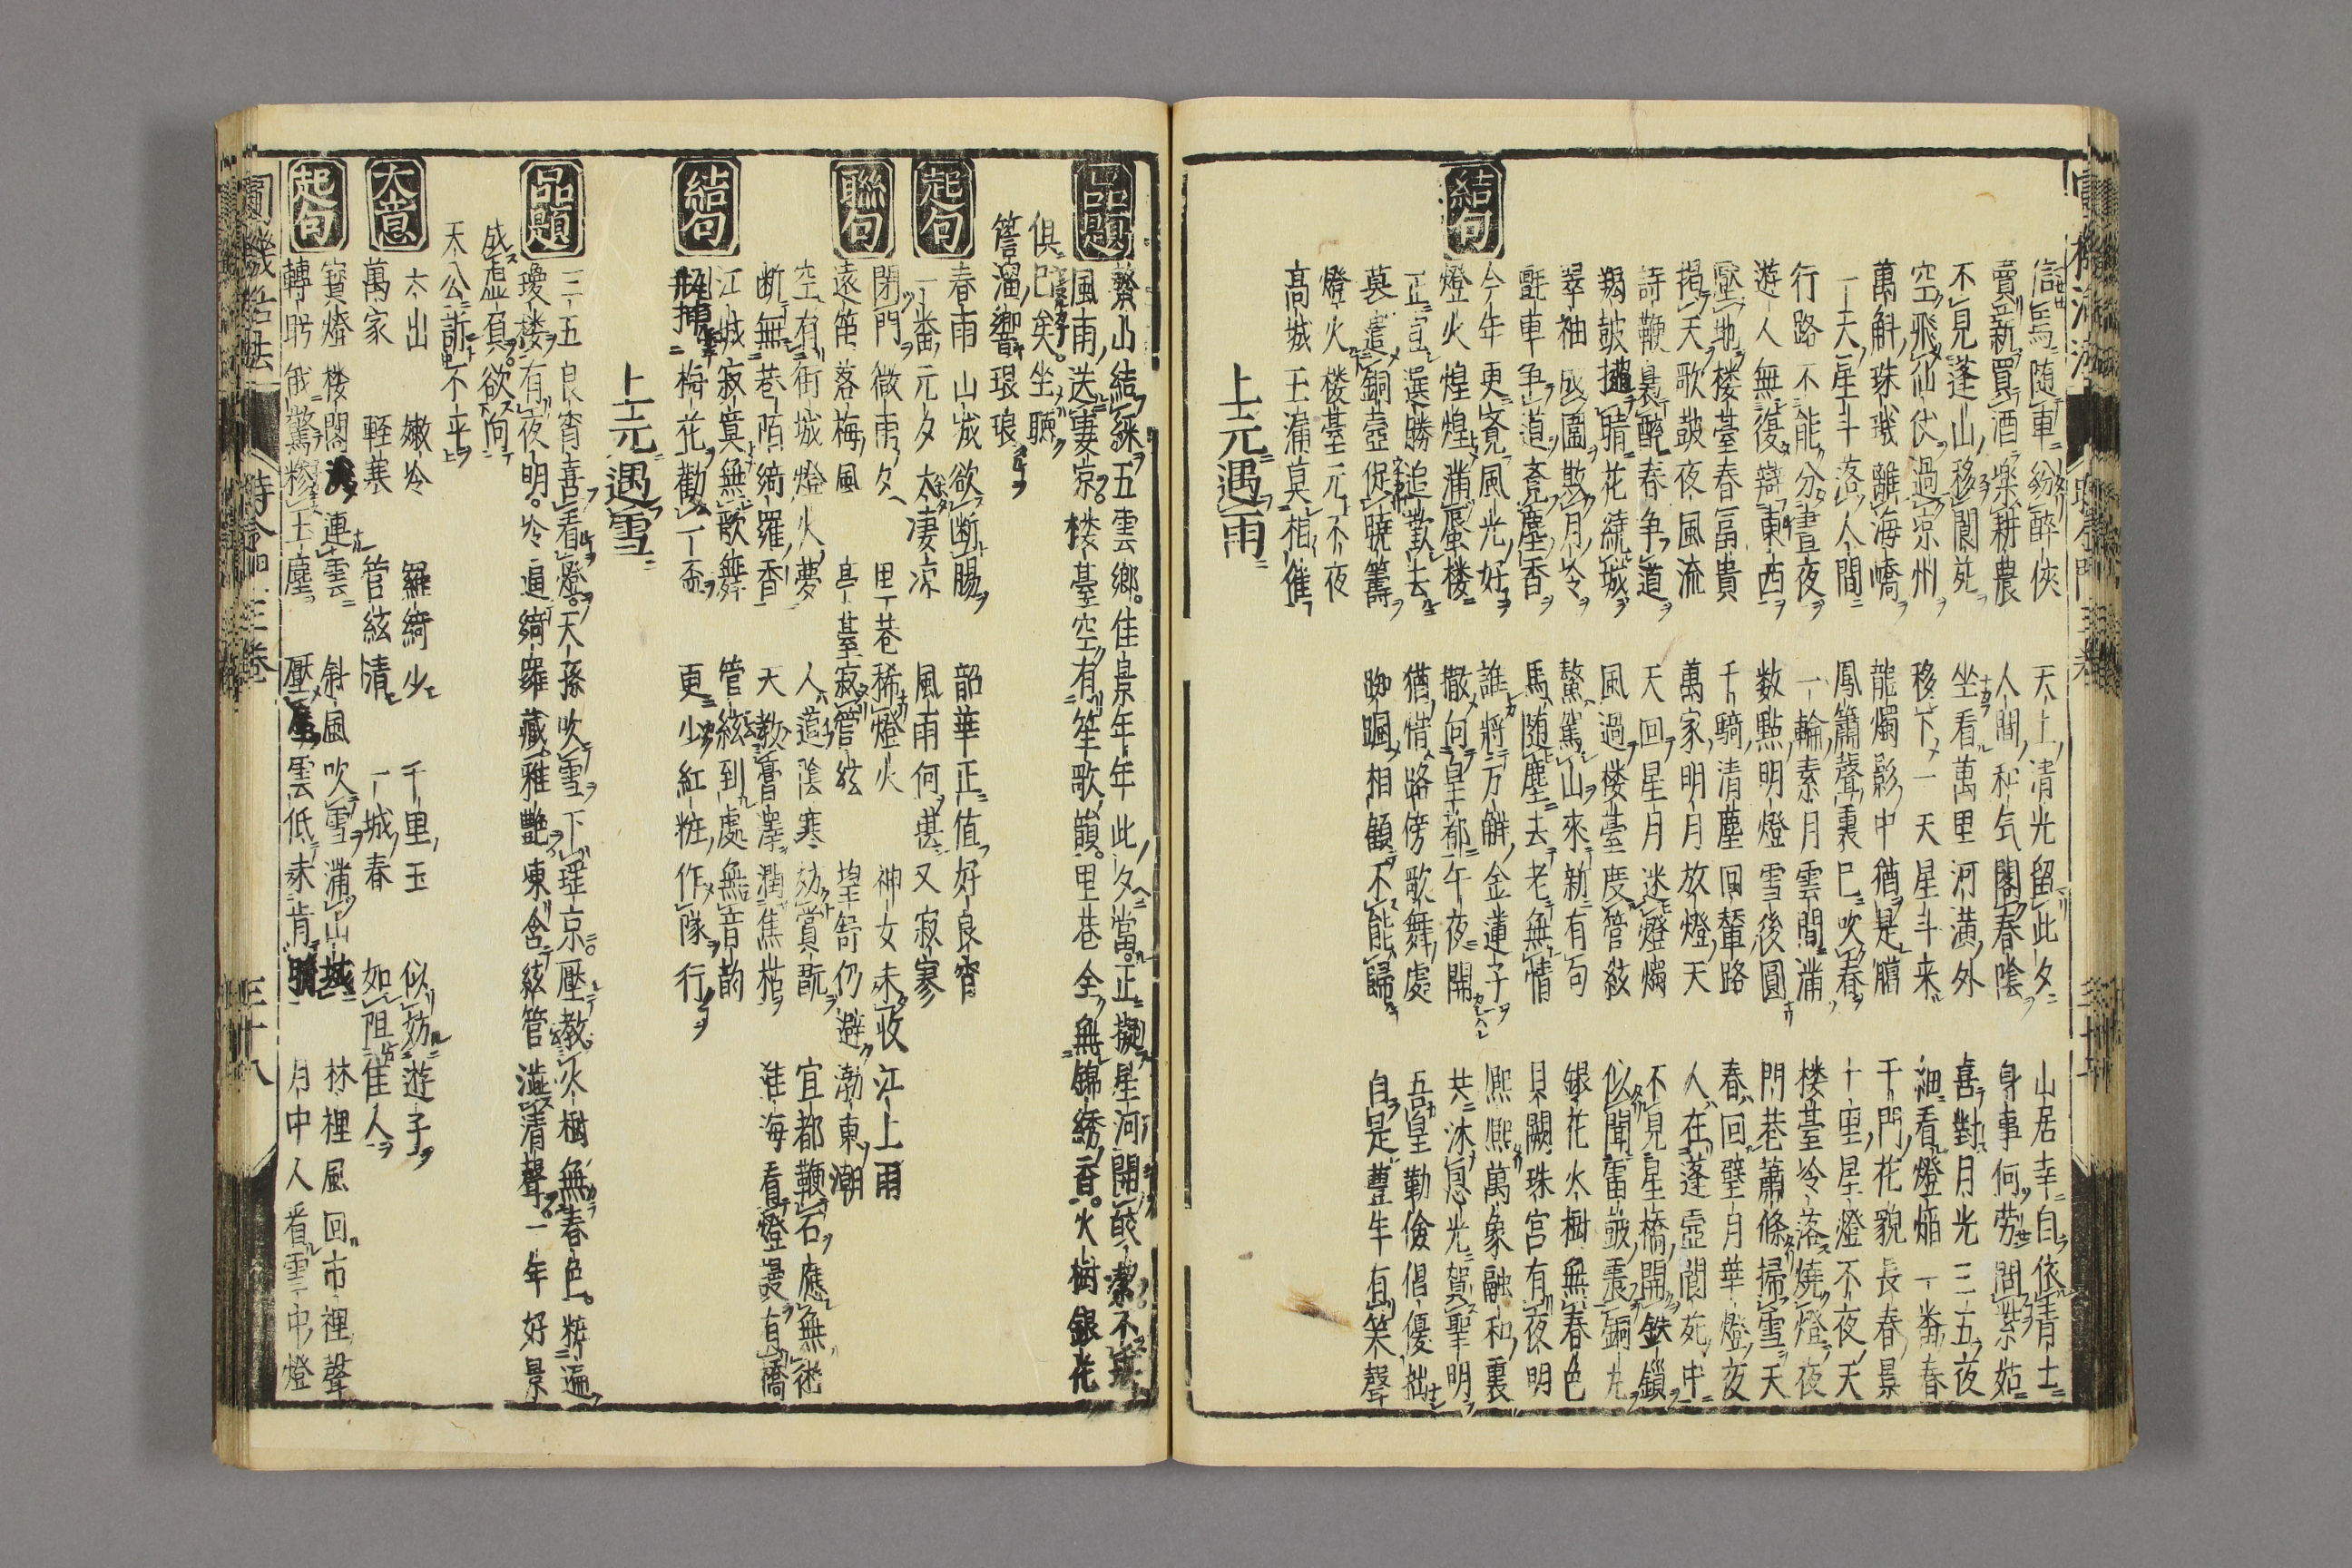 信馬随車紛醉俠 天上清光留此夕 山居幸自依青士
賣薪買酒楽耕農 人間和气閣春陰 身事何労問紫姑
不見蓬山移閬苑 坐看萬里河漢外 喜對月光三五夜
空飛仙伏過凉州 移下一天星斗来 細看燈焔一番春
萬斛珠璣離海嶠 龍燭影中猶是臘 千門花貌長春景
一天星斗落人間 鳳簫聲裏已吹春 十里星燈不夜天
行路不能分晝夜 一輪素月雲間満 楼臺冷落燒燈夜
遊人無復辯東西 数點明燈雪後圓 門巷蕭條掃雪天
壓地楼臺春冨貴 千騎清塵回輦路 春回璧月華燈夜
揭天歌鼓夜風流 萬家明月放燈天 人在蓬壺閬苑中
詩鞭裊醉春争道 天回星月迷燈燭 不見星橋開鉄鎖
羯鼓撾晴花繞城 風過楼臺度管絃 似聞雷鼓震銅丸
翠袖成圍敷月冷 鰲駕山來新有句 銀花火樹無春色
氈車争道麝塵香 馬随塵去老無情 貝闕珠宮有夜明
今年更覚風光好 誰將万斛金蓮子 熈熈萬象融和裏
結句 燈火煌煌満蜃楼 撒向皇都午夜開 共沐恩光賀聖明
正宜選勝追歡去 猶惜路傍歌舞處 吾皇勤倹倡優拙
莫遣銅壺促暁籌 踟蹰相顧不能歸 自是豊年有笑聲
燈火楼臺元不夜
髙城玉漏莫相催
上元遇雨
品題 鰲山結綵五雲郷。佳景年年此夕當。正擬星河開皎潔不
風雨送凄凉。楼臺空有笙歌韻。里巷全無錦綉香。火樹銀花
俱已矣。坐聴
簷溜響琅琅
起句 春雨山城欲断腸 韶華正値好良宵
一番元夕太凄凉 風雨何堪又寂寥
聯句 閉門微雨夕 里巷稀燈火 神女未收江上雨
遠笛落梅風 亭臺寂管絃 望舒仍避渤東潮
空有街城燈火夢 人造陰寒妨賞翫 宜都鞭石應無術
断無巷陌綺羅香 天教膏澤潤焦枯 淮海看燈漫有橋
結句 江城寂寞無歌舞 管絃到處無音韵
瓶挿梅花勸一盃 更少紅粧作隊行
上元遇雪
品題 三五良宵喜看燈。天孫吹雪下瑶京。壓教火樹無春色。粧遍
瓊楼有夜明。冷逼綺羅藏雅艶。凍含絃管澁清聲。一年好景
成虚負。欲向
天公訴不平
大意 六出 嫩冷 羅綺少 千里玉 似妨遊子
萬家 軽寒 管絃清 一城春 如阻佳人
起句 寳燈楼閣連雲 斜風吹雪満山城 林裡風回市裡聲
轉盻俄驚糝玉塵 壓屋雲低未肯晴 月中人看雪中燈